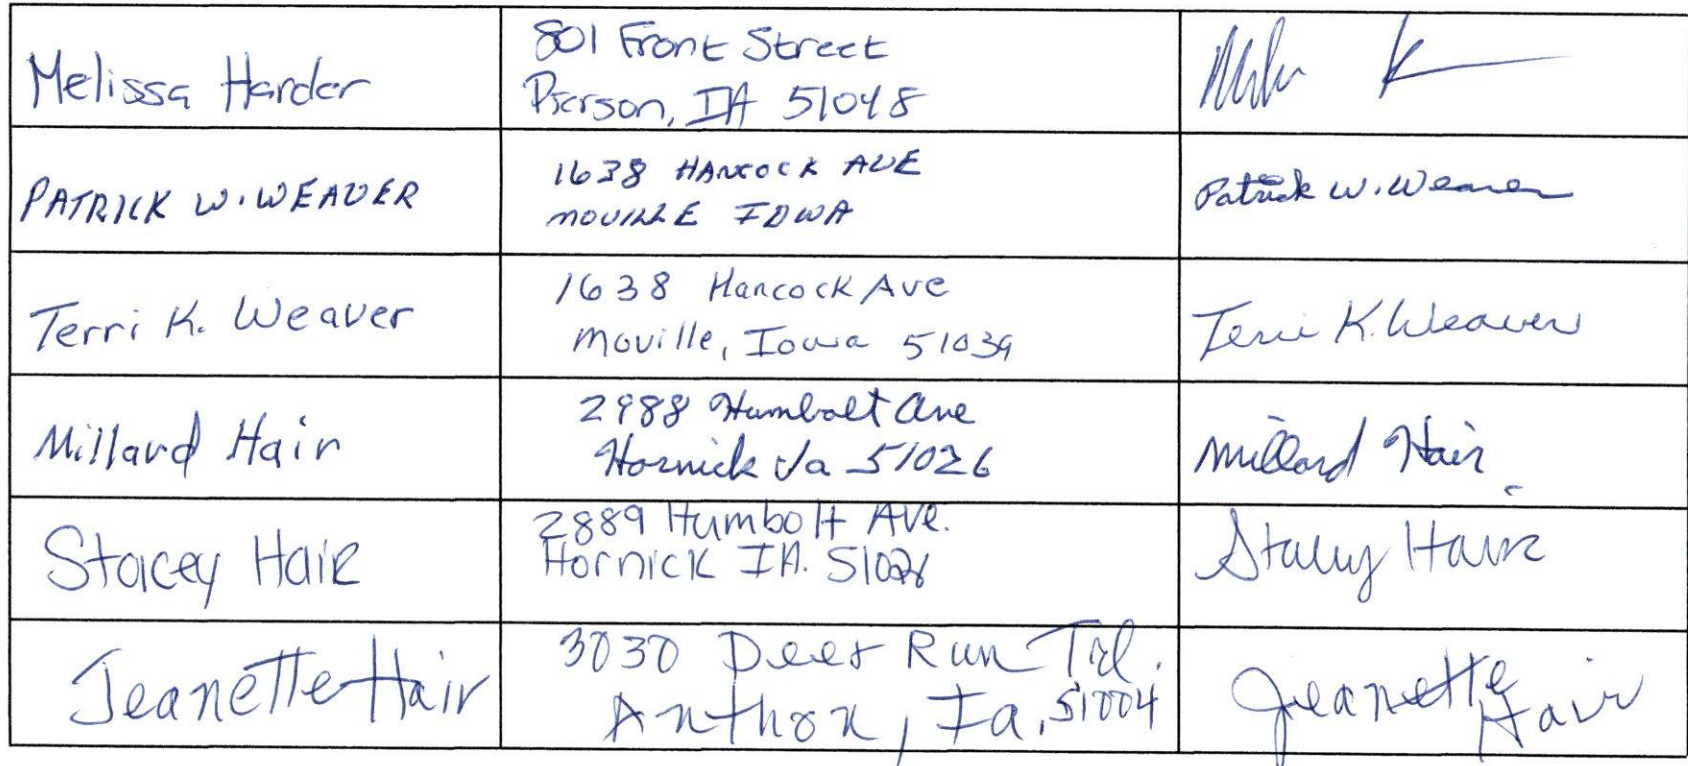 Melissa Harder
801 Front Street
Pierson, IA 51048
PATRICK W. WEAVER
1638 HANCOCK AVE
MOVILLE IOWA
Patrick W. Weaver
Terri K. Weaver
1638 Hancock Ave
Moville, Iowa 51039
Terri K. Weaver
Millard Hair
2988 Humbolt Ave
Hornick Ia 51026
Millard Hair
Stacey Hair
2889 Humbolt Ave.
Hornick IA. 51026
Stacey Hair
Jeanette Hair
3030 Deer Run Trl.
Anthon, Ia, 51004
Jeanette
Hair